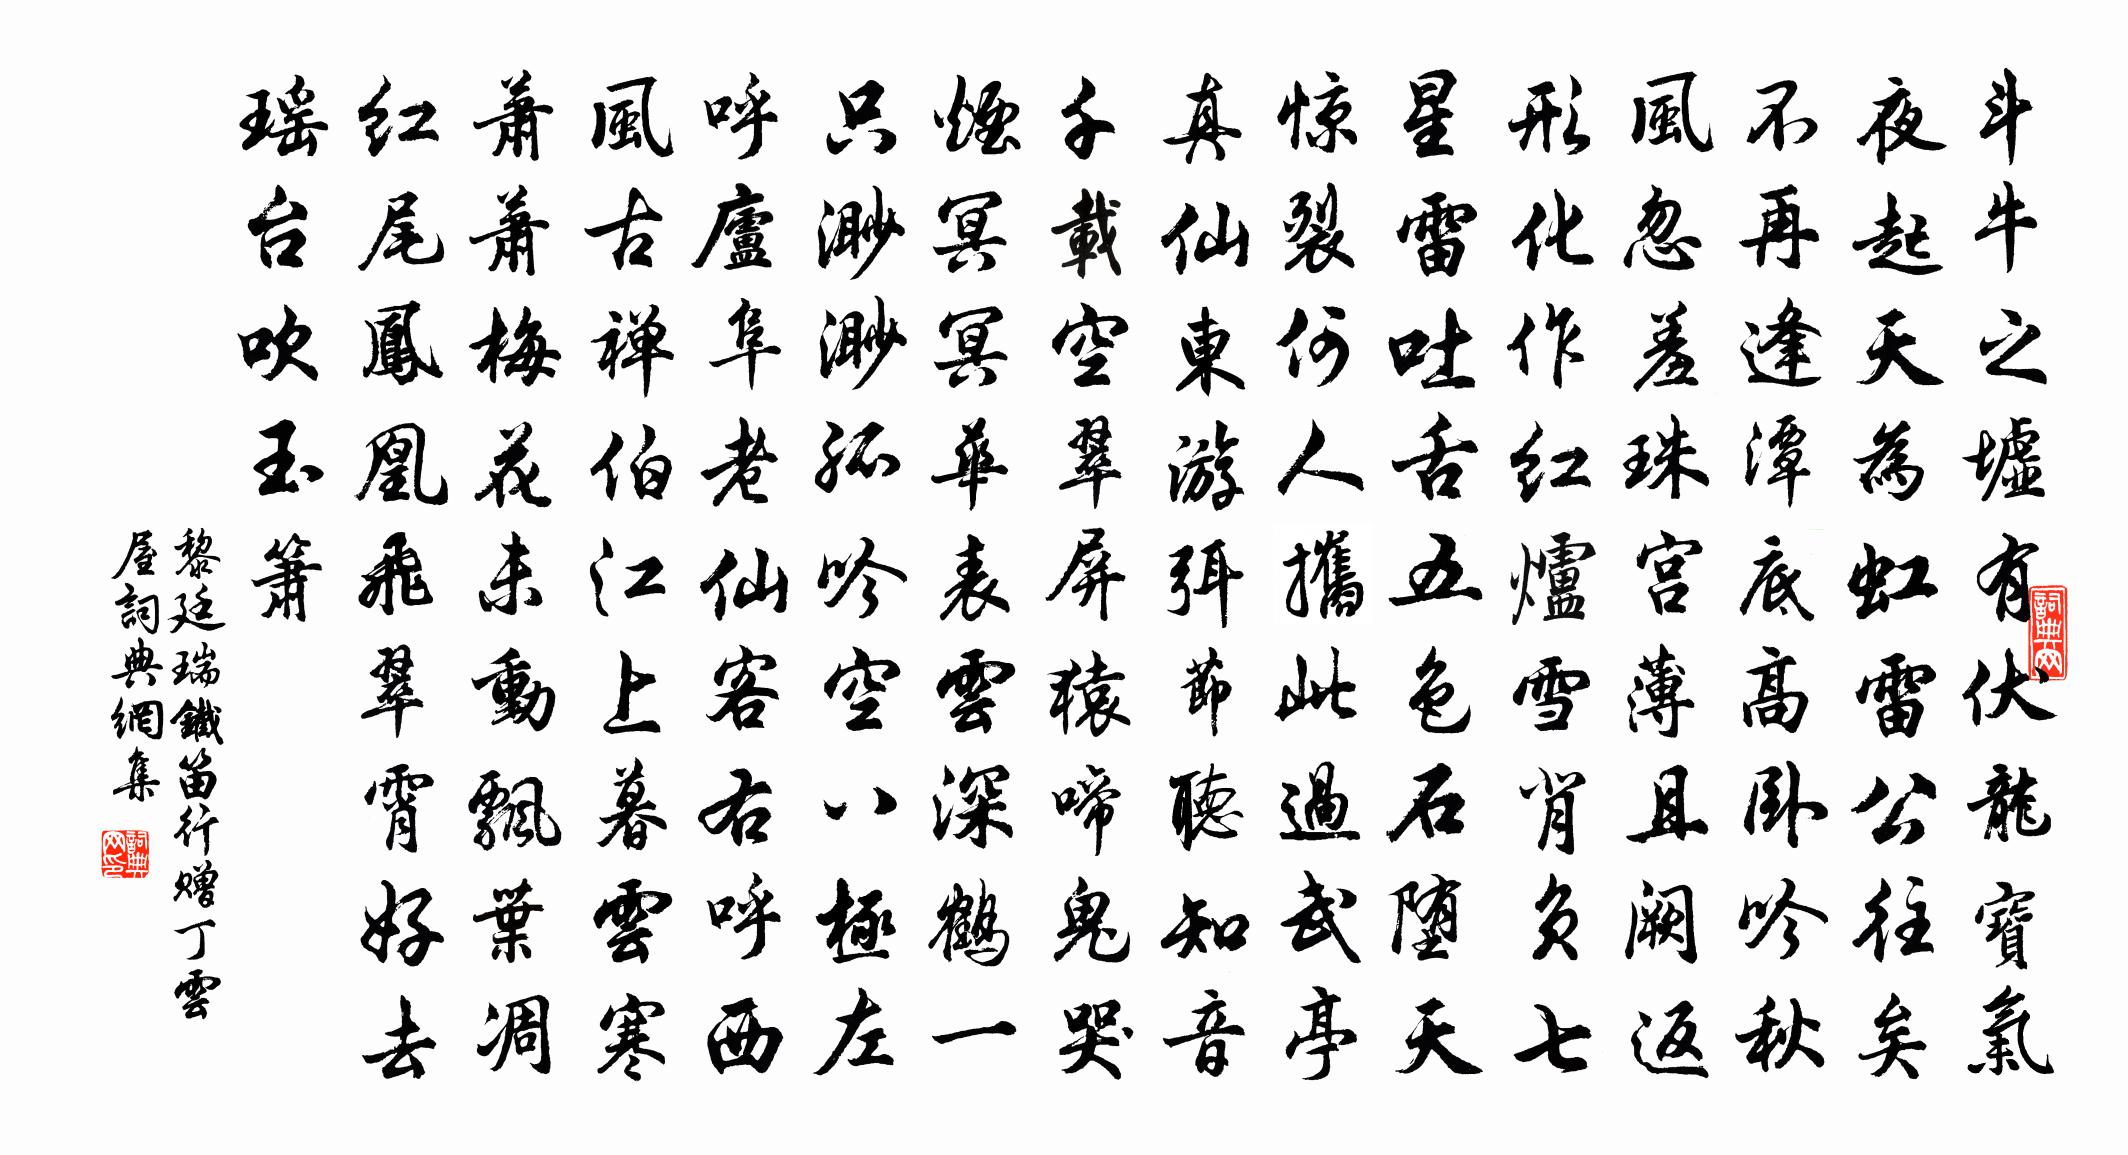 斗牛之墟有伏龍寶氣
夜起天為虹雷公往矣
不再逢潭底高卧吟秋
風忽羞珠宫薄貝阙返
形化作红爐雪背负七
星雷吐舌五色石堕天
惊裂何人攜此過武亭
真仙東游弭節聽知音
千載空翠屏猿啼鬼哭
煙冥冥華表雲深鶴一
只渺渺孤吟空八極左
呼廬阜老仙客右呼西
風古禅伯江上暮雲寒
蕭蕭梅花未動飄葉凋
红尾鳳凰飛翠霄好去
瑶台吹玉簫
黎廷瑞鐵笛行赠丁雲
屋詞典網集
詞典网
詞典网印